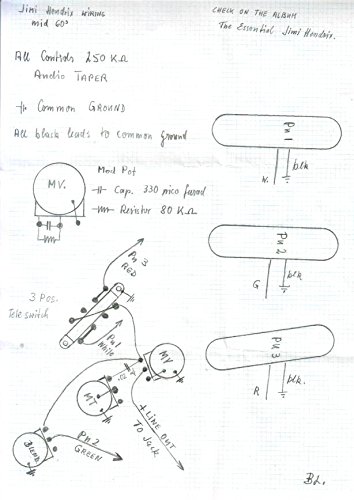 Jimi Hendrix WIRING
mid 60s
CHECK ON THE ALBUM
The Essential Jimi Hendrix.
All Controls 250 KΩ
Audio TAPER
Common GROUND
All black leads to common ground
Pu 1
blk
W.
MV.
Mod Pot
Cap. 330 pico farad
Resistor 80 KΩ
Pu 2
blk
G
Pu 3
RED
3 Pos.
Tele switch
Pu 1
White
MV
MT
+ LINE OUT
TO Jack
Blend
Pu 2
GREEN
Pu 3
blk.
R
BL.